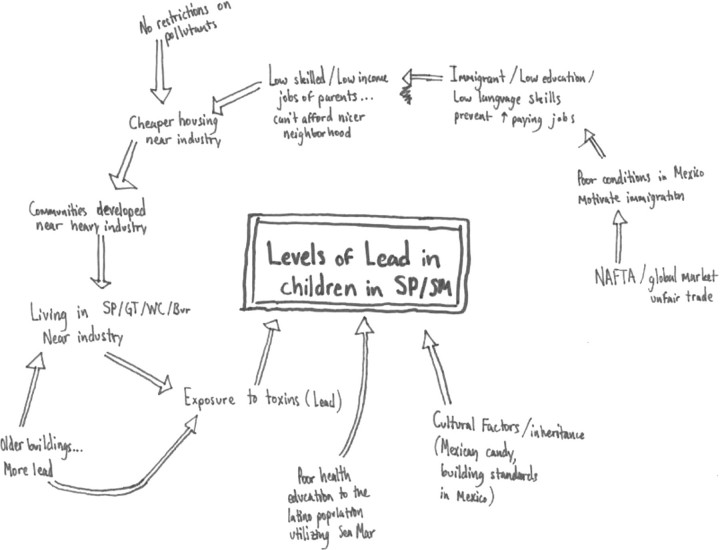 No restrictions on
pollutants
Low skilled/Low income
jobs of parents...
can't afford nicer
neighborhood
Immigrant/Low education/
Low language skills
prevent ↑ paying jobs
Cheaper housing
near industry
Poor conditions in Mexico
Motivate immigration
Communities developed
near heavy industry
Levels of Lead in
children in SP/SM
NAFTA/global market
unfair trade
Living in SP/GT/WC/Bur
Near industry
Exposure to toxins (Lead)
Older buildings...
More lead
Cultural Factors/inheritance
(Mexican candy,
building standards
in Mexico)
Poor health
education to the
latino population
utilizing Sea Mar